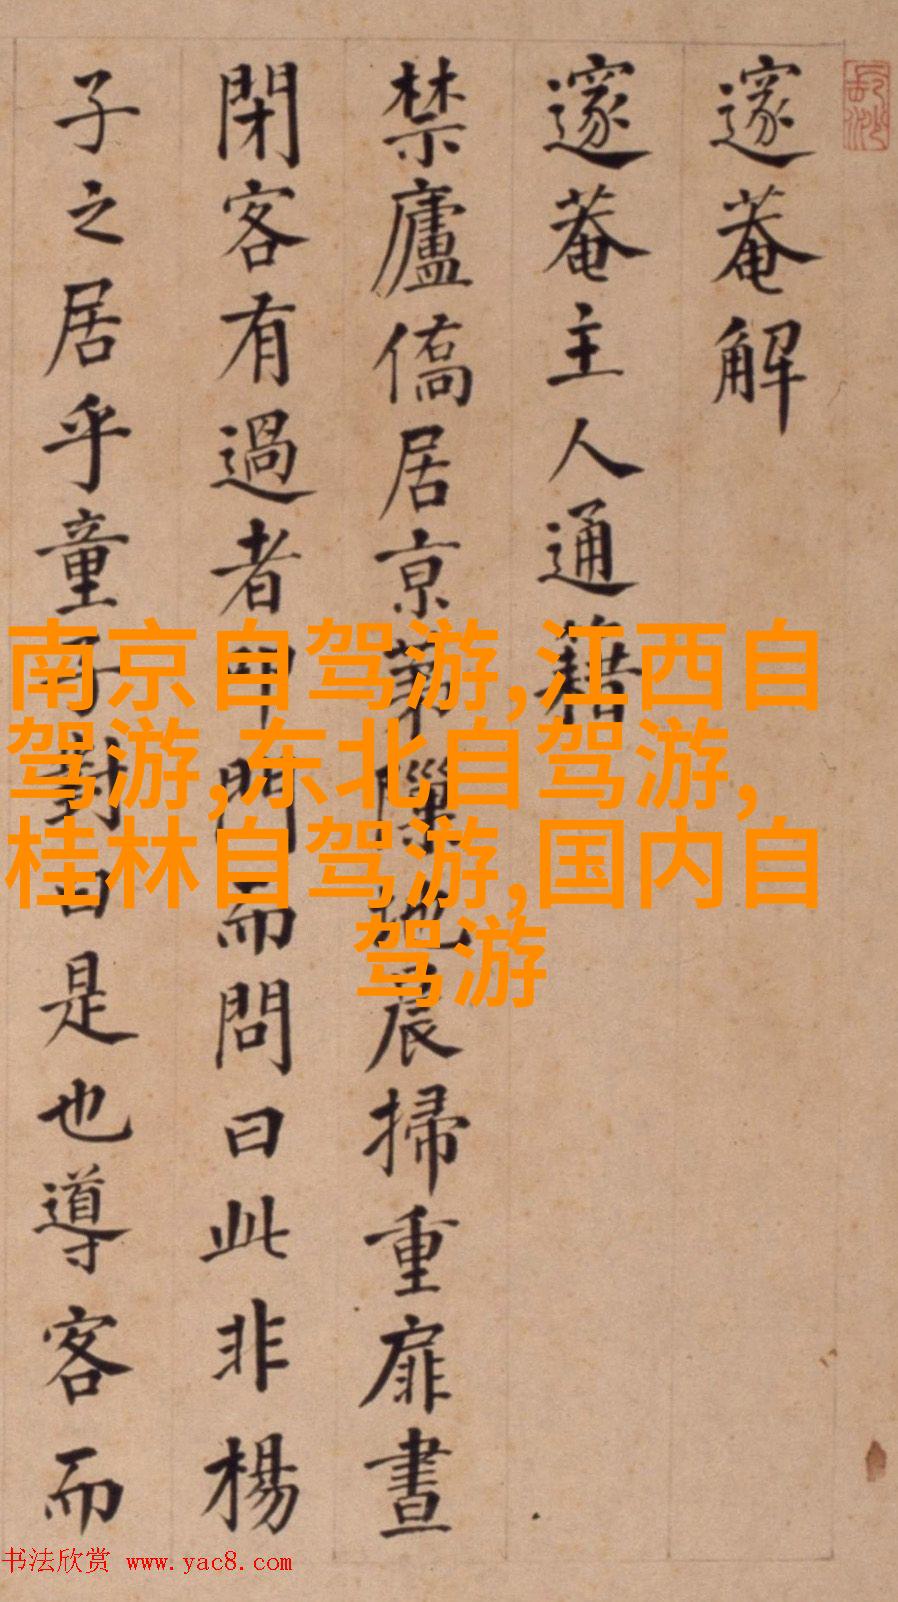 邃菴解
邃菴主人通籍
禁廬僑居京第隟地晨掃重扉晝
閉客有過者叩門而問曰此非楊
子之居乎童子對曰是也導客而
南京自驾游,江西自
驾游,东北自驾游,
桂林自驾游,国内自
驾游
书法欣赏 www.yac8.com